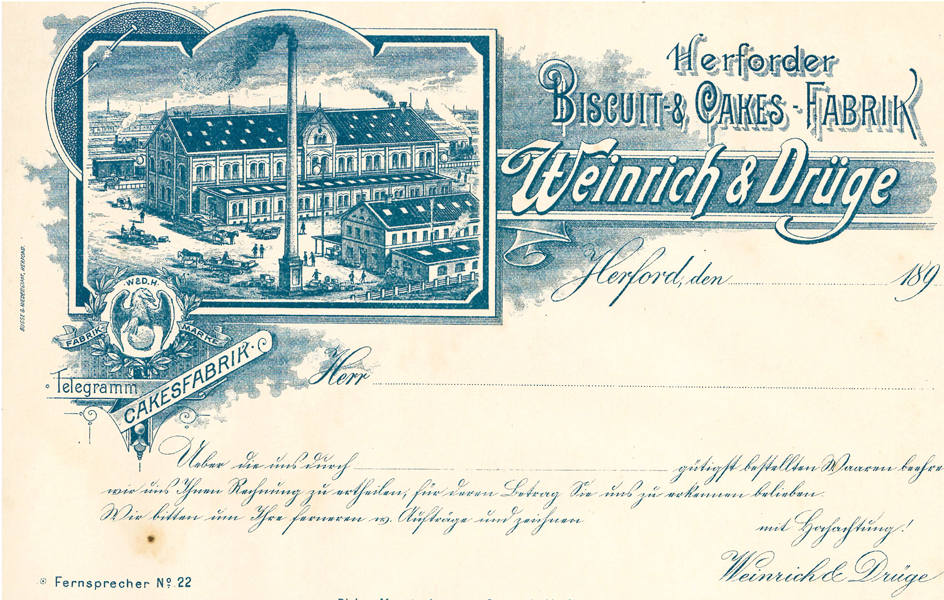 Herforder
BISCUIT- & CAKES-FABRIK
Weinrich & Drüge
Herford, den 189
W & D. H.
FABRIK MARKE
Telegramm
CAKESFABRIK.
Herr
Ueber die uns durch gütigst bestellten Waaren beehre
wir uns Ihnen Rechnung zu ertheilen, für deren Betrag Sie uns zu erkennen belieben.
Wir bitten um Ihre ferneren w. Aufträge und zeichnen
mit Hochachtung!
Weinrich & Drüge
Fernsprecher No 22